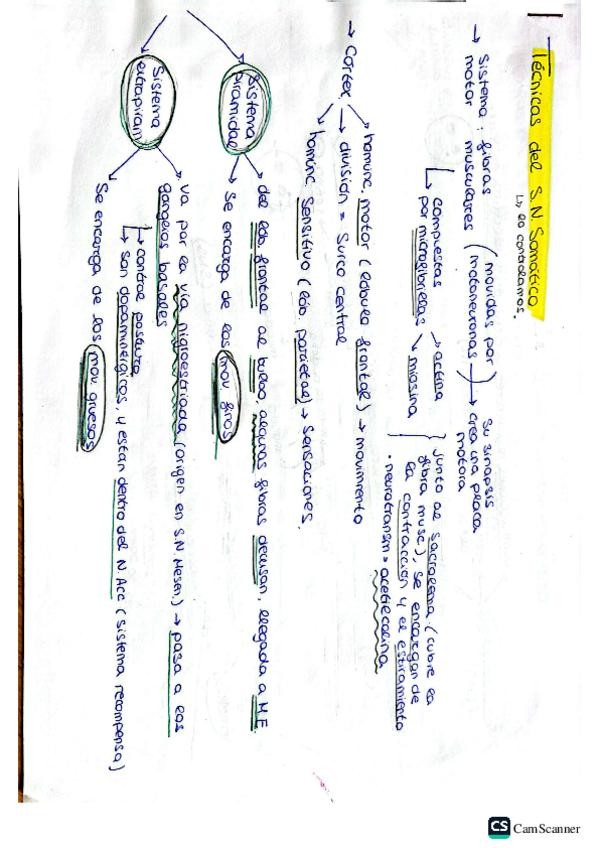 Técnicas del S.N. Somático
↳ lo controlamos.
→ Sistema motor: fibras musculares (movidas por motoneuronas) → su sinapsis crea una placa motora
↳ compuestas por microfibrillas → actina
↘ miosina
} junto al sacrolema (cubre la fibra musc), se encargan de la contracción y el estiramiento
• neurotransm = acetilcolina
→ Cortex → homúnc. motor (lóbulo frontal) → movimiento
→ división = Surco central
↘ homúnc. sensitivo (lób. parietal) → sensaciones.
Sistema piramidal → del lób. frontal al bulbo, algunas fibras decusan, llegada a M.E.
↘ Se encarga de los mov. finos
Sistema extrapiram → va por la vía nigroestriada (origen en S.N. Mesen.) → pasa a los ganglios basales
↳ control postura
↳ son dopaminérgicos, y están dentro del N. Acc (sistema recompensa)
Se encarga de los mov. gruesos
CS CamScanner